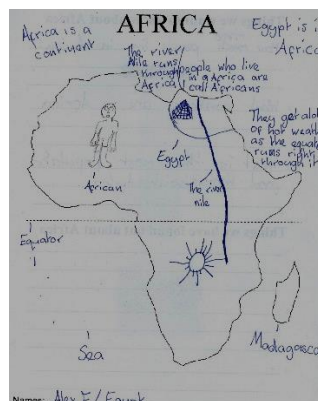 AFRICA
Africa is a
continent
Egypt is i
Africa
The river
Nile runs
through
Africa
people who live
in a Africa are
call Africans
They get alot
of hot weath
as the equat
runs right
through it
Egypt
African
The river
nile
Equator
Sea
Madagasca
Names: Alex F / Egypt